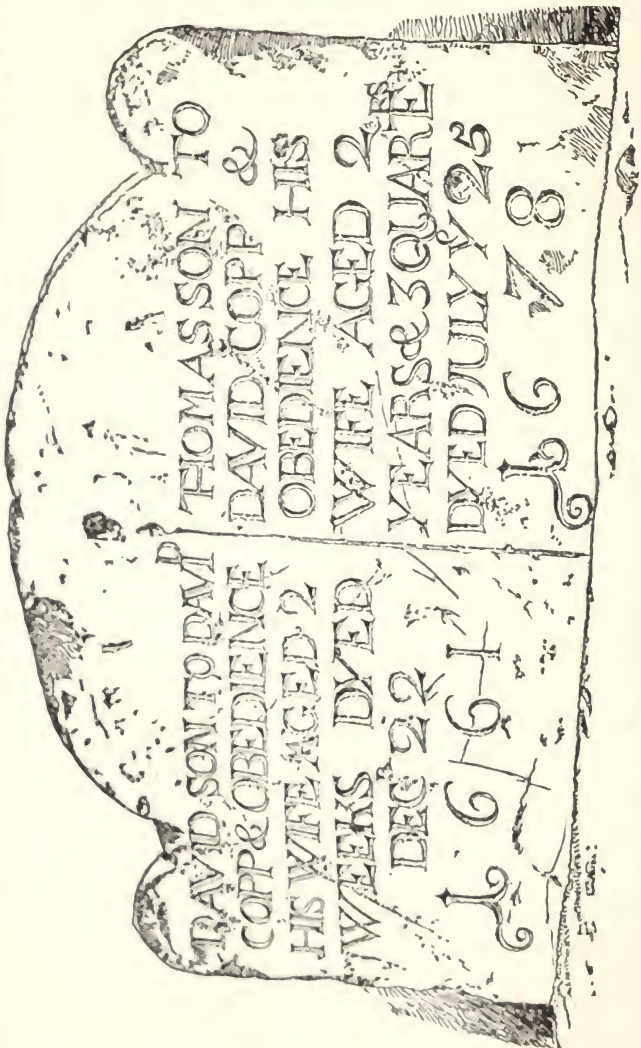 DAVID SON TO DAVID
COPP & OBEDIENCE
HIS WIFE AGED 2
WEEKS DYED
DECR 22
1661
THOMAS SON TO
DAVID COPP &
OBEDIENCE HIS
WIFE AGED 2
YEARS & 3 QUARTERS
DYED JULY Ye 25
1678